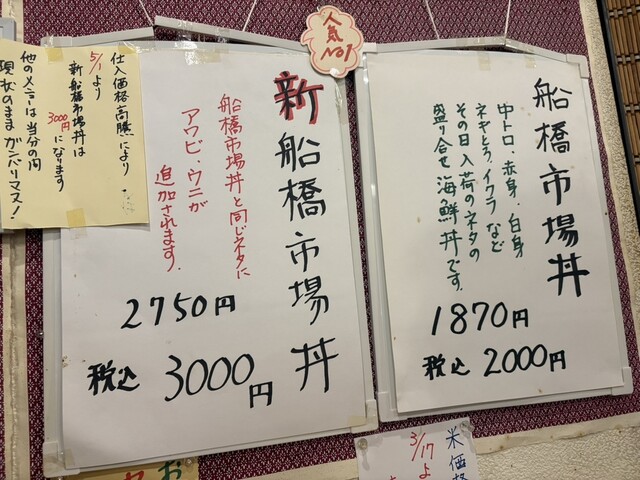 人気
No1
船橋市場丼
中トロ、赤身、白身
ネギとろ、イクラなど
その日入荷のネタの
盛り合せ海鮮丼です。
1870円
税込 2000円
新船橋市場丼
船橋市場丼と同じネタに
アワビ・ウニが
追加されます。
2750円
税込 3000円
仕入価格高騰により
5/1より
新船橋市場丼は
3000円になります
他のメニューは当分の間
現状のまま ガンバリマス!
米価格
3/17よ